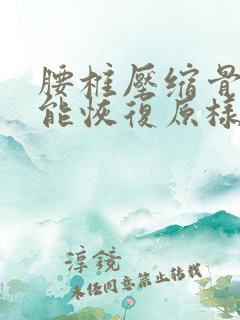 腰椎壓缩骨
能恢復原樣
淳鏡
未经同意禁止转载